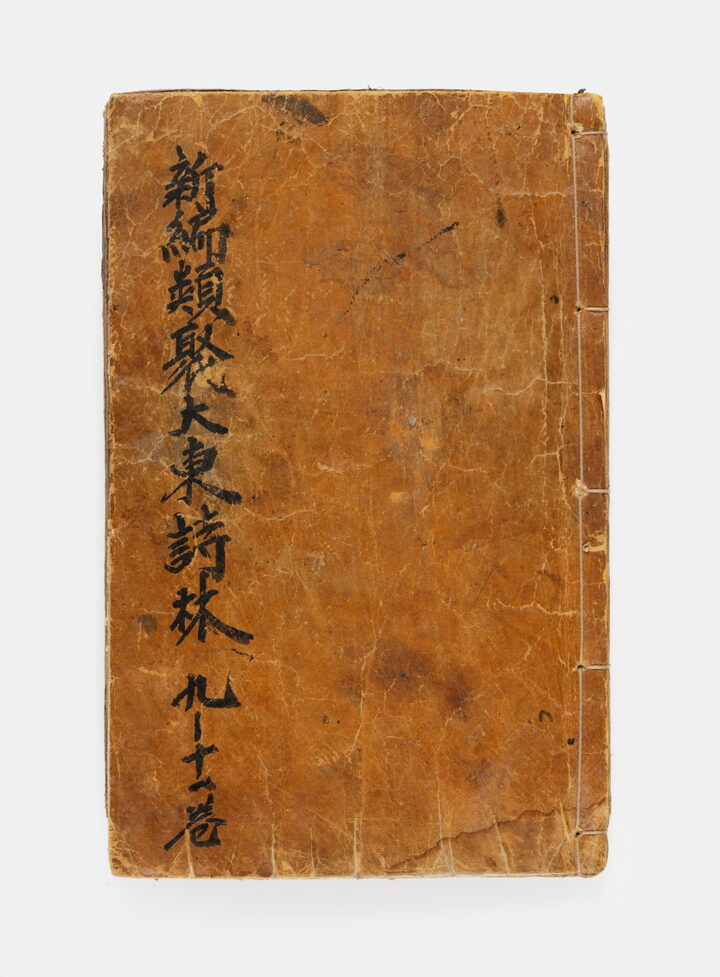 新編類聚大東詩林 九-十一卷